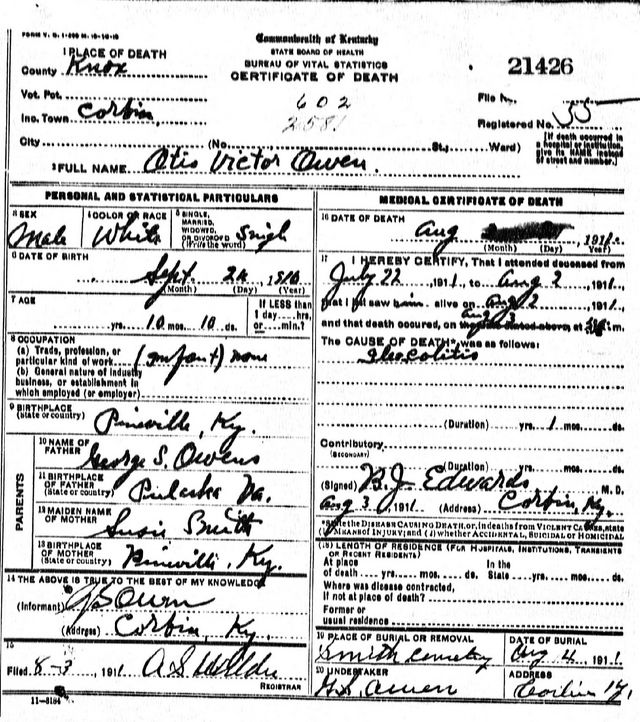 FORM V. S. 1-
Commonwealth of Kentucky
STATE BOARD OF HEALTH
BUREAU OF VITAL STATISTICS
CERTIFICATE OF DEATH
1 PLACE OF DEATH
County Knox
21426
Vot. Pct.
602
File No.
Inc. Town Corbin,
2581
Registered No. 55
City (No. St.; Ward)
[If death occurred in a hospital or institution, give its NAME instead of street and number.]
2 FULL NAME Otis Victor Owen.
PERSONAL AND STATISTICAL PARTICULARS
3 SEX Male
4 COLOR OR RACE White
5 SINGLE, MARRIED, WIDOWED, OR DIVORCED (Write the word) Single
6 DATE OF BIRTH
Sept. 24, 1910
(Month) (Day) (Year)
7 AGE
yrs. 10 mos. 10 ds.
If LESS than 1 day....hrs, or.....min.?
8 OCCUPATION
(a) Trade, profession, or particular kind of work (infant) none
(b) General nature of industry business, or establishment in which employed (or employer)
9 BIRTHPLACE
(State or country) Pineville, Ky.
PARENTS
10 NAME OF FATHER George S. Owens
11 BIRTHPLACE OF FATHER
(State or country) Pulaska Va.
12 MAIDEN NAME OF MOTHER Susie Smith
13 BIRTHPLACE OF MOTHER
(State or country) Pineville, Ky.
14 THE ABOVE IS TRUE TO THE BEST OF MY KNOWLEDGE
(Informant) G S Owen
(Address) Corbin, Ky.
15
Filed 8-3, 1911 A S
REGISTRAR
11-3184
MEDICAL CERTIFICATE OF DEATH
16 DATE OF DEATH
Aug 1911.
(Month) (Day) (Year)
17 I HEREBY CERTIFY, That I attended deceased from
July 22, 1911, to Aug 2, 1911,
that I last saw him alive on Aug 2, 1911,
Aug 3
and that death occured, on the date stated above, at m.
The CAUSE OF DEATH* was as follows:
Ileo Colitis
(Duration) yrs. 1 mos. ds.
Contributory
(SECONDARY)
(Duration) yrs. mos. ds.
(Signed) B. J. Edwards M. D.
Aug 3, 1911 (Address) Corbin, Ky.
*State the DISEASE CAUSING DEATH, or, in deaths from VIOLENT CAUSES, state
MEANS OF INJURY; and (2) whether ACCIDENTAL, SUICIDAL OR HOMICIDAL
(18) LENGTH OF RESIDENCE (FOR HOSPITALS, INSTITUTIONS, TRANSIENTS
OR RECENT RESIDENTS)
At place of death....yrs.....mos.....ds. In the State....yrs.....mos.....ds.
Where was disease contracted,
If not at place of death?
Former or
usual residence
19 PLACE OF BURIAL OR REMOVAL
Smith Cemetery
DATE OF BURIAL
Aug 4, 1911
20 UNDERTAKER
Owen
ADDRESS
Corbin Ky.